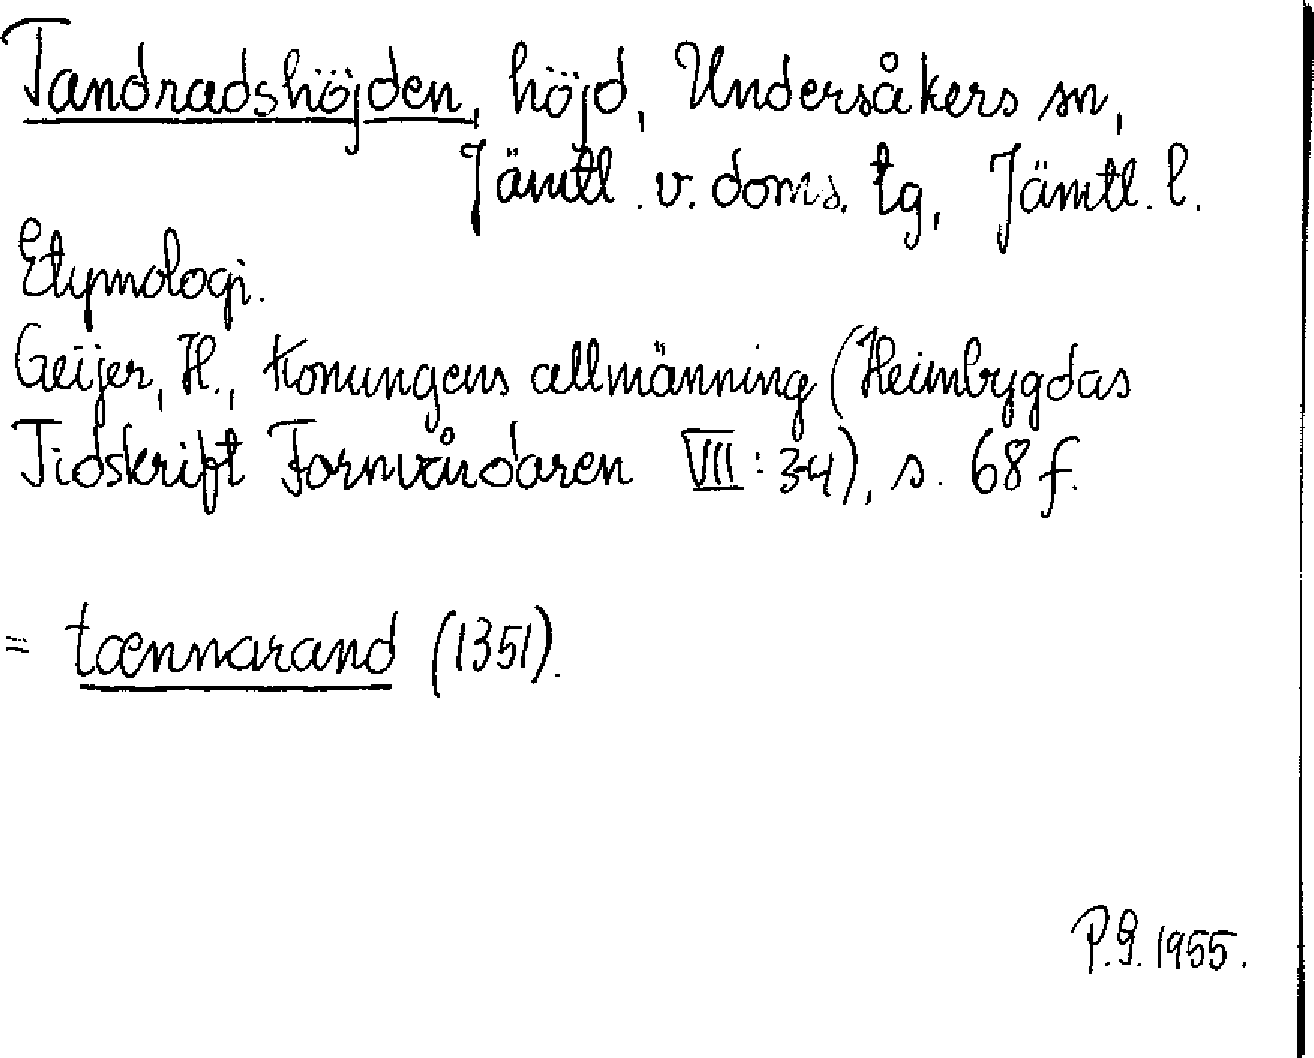 Tandradshöjden, höjd, Undersåkers sn,
Jämtl. v. doms. tg, Jämtl. l.
Etymologi.
Geijer, H., Konungens allmänning (Heimbygdas
Tidskrift Fornvårdaren VII:3-4), s. 68 f.
= tænnarand (1351).
P.G. 1955.